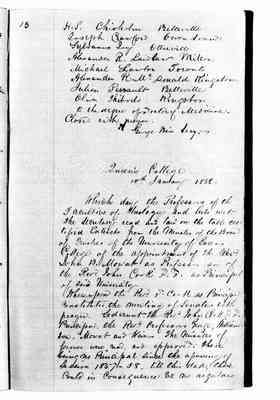 13
H. S. Chisholm Belleville
Joseph Crawford Owen Sound
Sylvanus Ivy Otterville
Alexander R. Milton
Michael Lawton Toronto
Alexander R. McDonald Kingston
Julien Perrault Belleville
Oliver Thibodo Kingston
to the degree of Doctor of Medicine
Closed with prayer
George Weir Secy
Queen's College
10th January 1858
Which day the Professors of the
Faculties of Theology and Arts met
The Secretary read and laid on the table cer-
tified Extracts from the Minutes of the Board
of Trustees of the University of Queen's
College of the appointment of the Revd
John B. Mowat as Professor and
the Revd John Cook D.D. as Principal
of said University
Whereupon the Revd Dr Cook as Principal
constituted the meeting of Senatus with
prayer Sederunt the Revd John Cook D.D.
Principal, the Revd Professors George, William-
son, Mowat and Weir The Minutes of
former were read and approved. There
being no Principal since the opening of
Session 1857-58, till this date, there
could in consequence be no regular